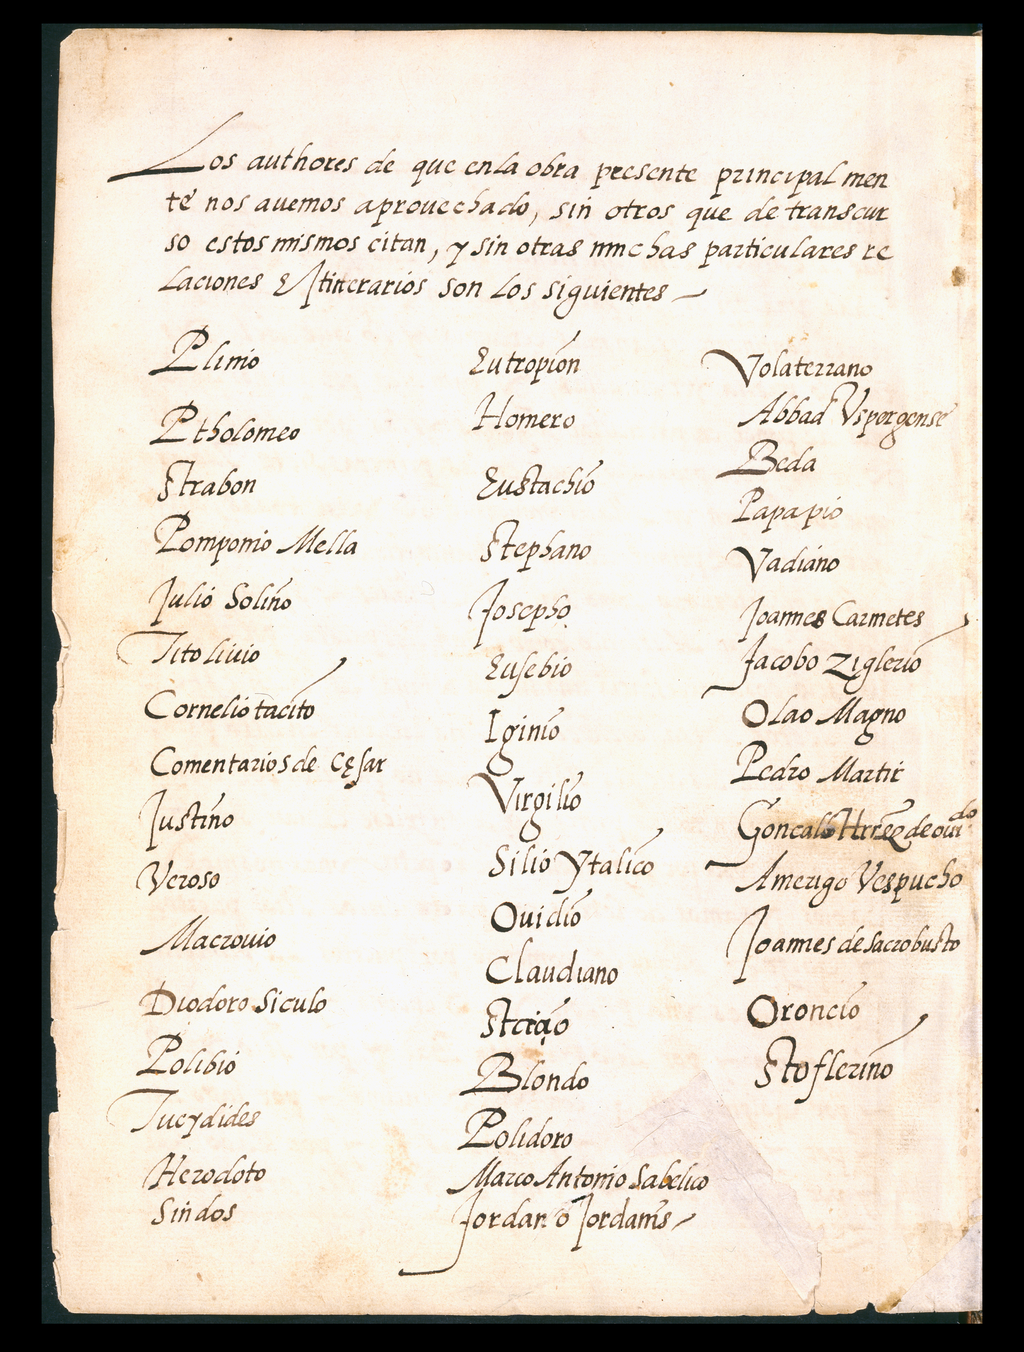 Los authores de que enla obra presente principal men
te nos auemos aprouechado, sin otros que de transcur
so estos mismos citan, y sin otras muchas particulares re
laciones & Itinerarios son los siguientes
Plinio
Ptholomeo
Strabon
Pomponio Mella
Julio Solino
Tito liuio
Cornelio tacito
Comentarios de Cęsar
Justino
Veroso
Macrouio
Diodoro Siculo
Polibio
Tucydides
Herodoto
Sindos
Eutropion
Homero
Eustachio
Stephano
Josepho
Eusebio
Iginio
Virgilio
Silio Ytalico
Ouidio
Claudiano
Blondo
Polidoro
Marco Antonio Sabelico
Jordan o Jordanis
Volaterrano
Abbad Vspergense
Beda
Papa pio
Vadiano
Joannes Carmetes
Jacobo Ziglerio
Olao Magno
Pedro Martir
Goncalo Hrrez de ouido
Amerigo Vespucho
Joannes de sacrobusto
Oroncio
Stoflerino